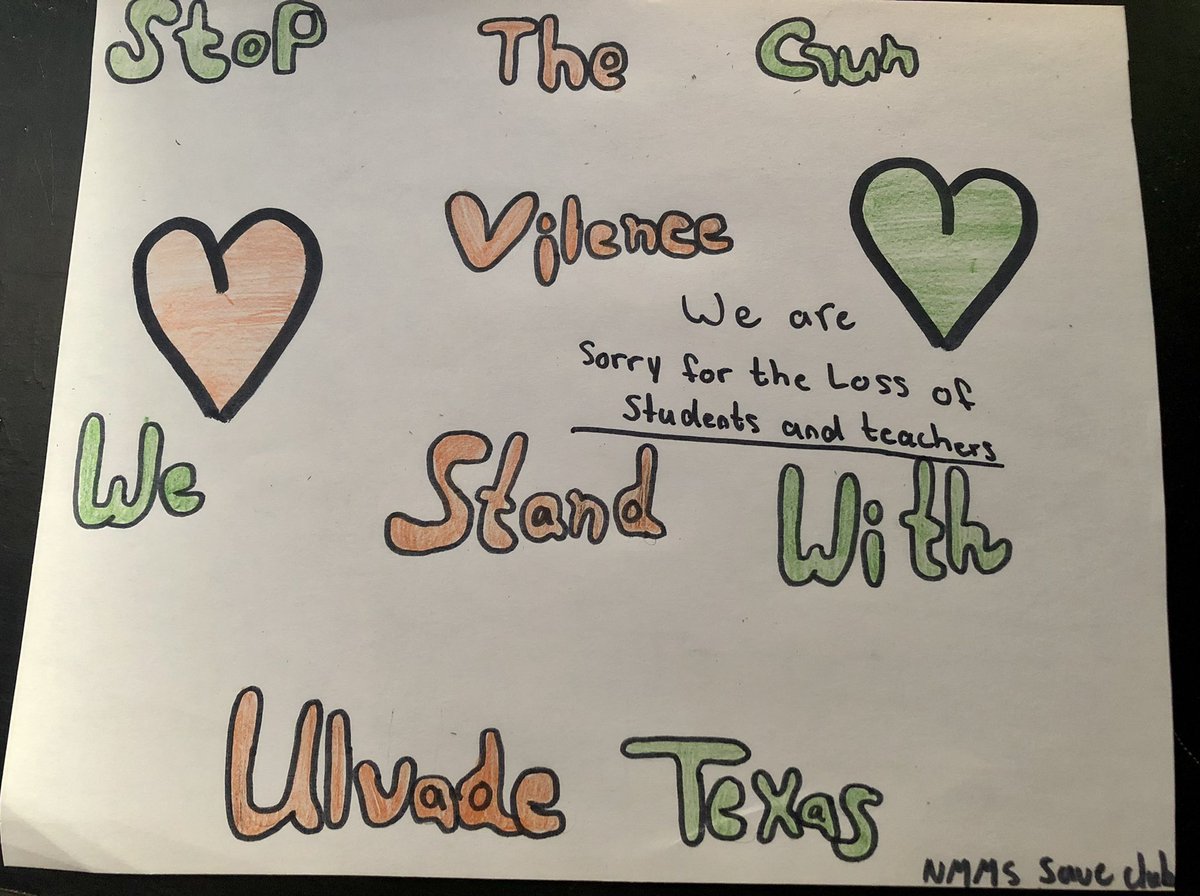 Stop The Gun
Vilence
We are
Sorry for the Loss of
Students and teachers
We Stand With
Ulvade Texas
NMMS Save club